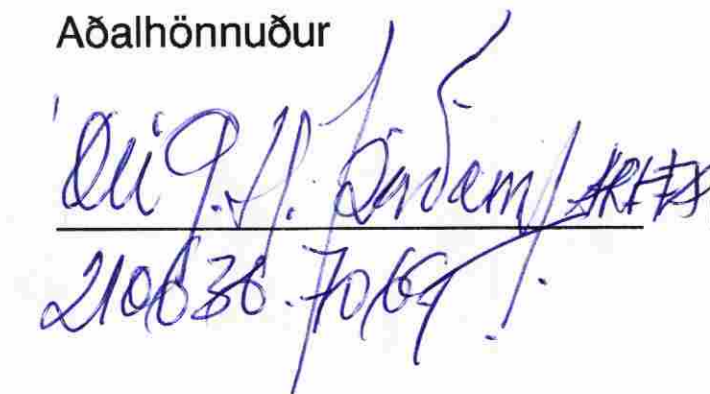 Aðalhönnuður
Óli G. H. Þórðarson
210636-7069